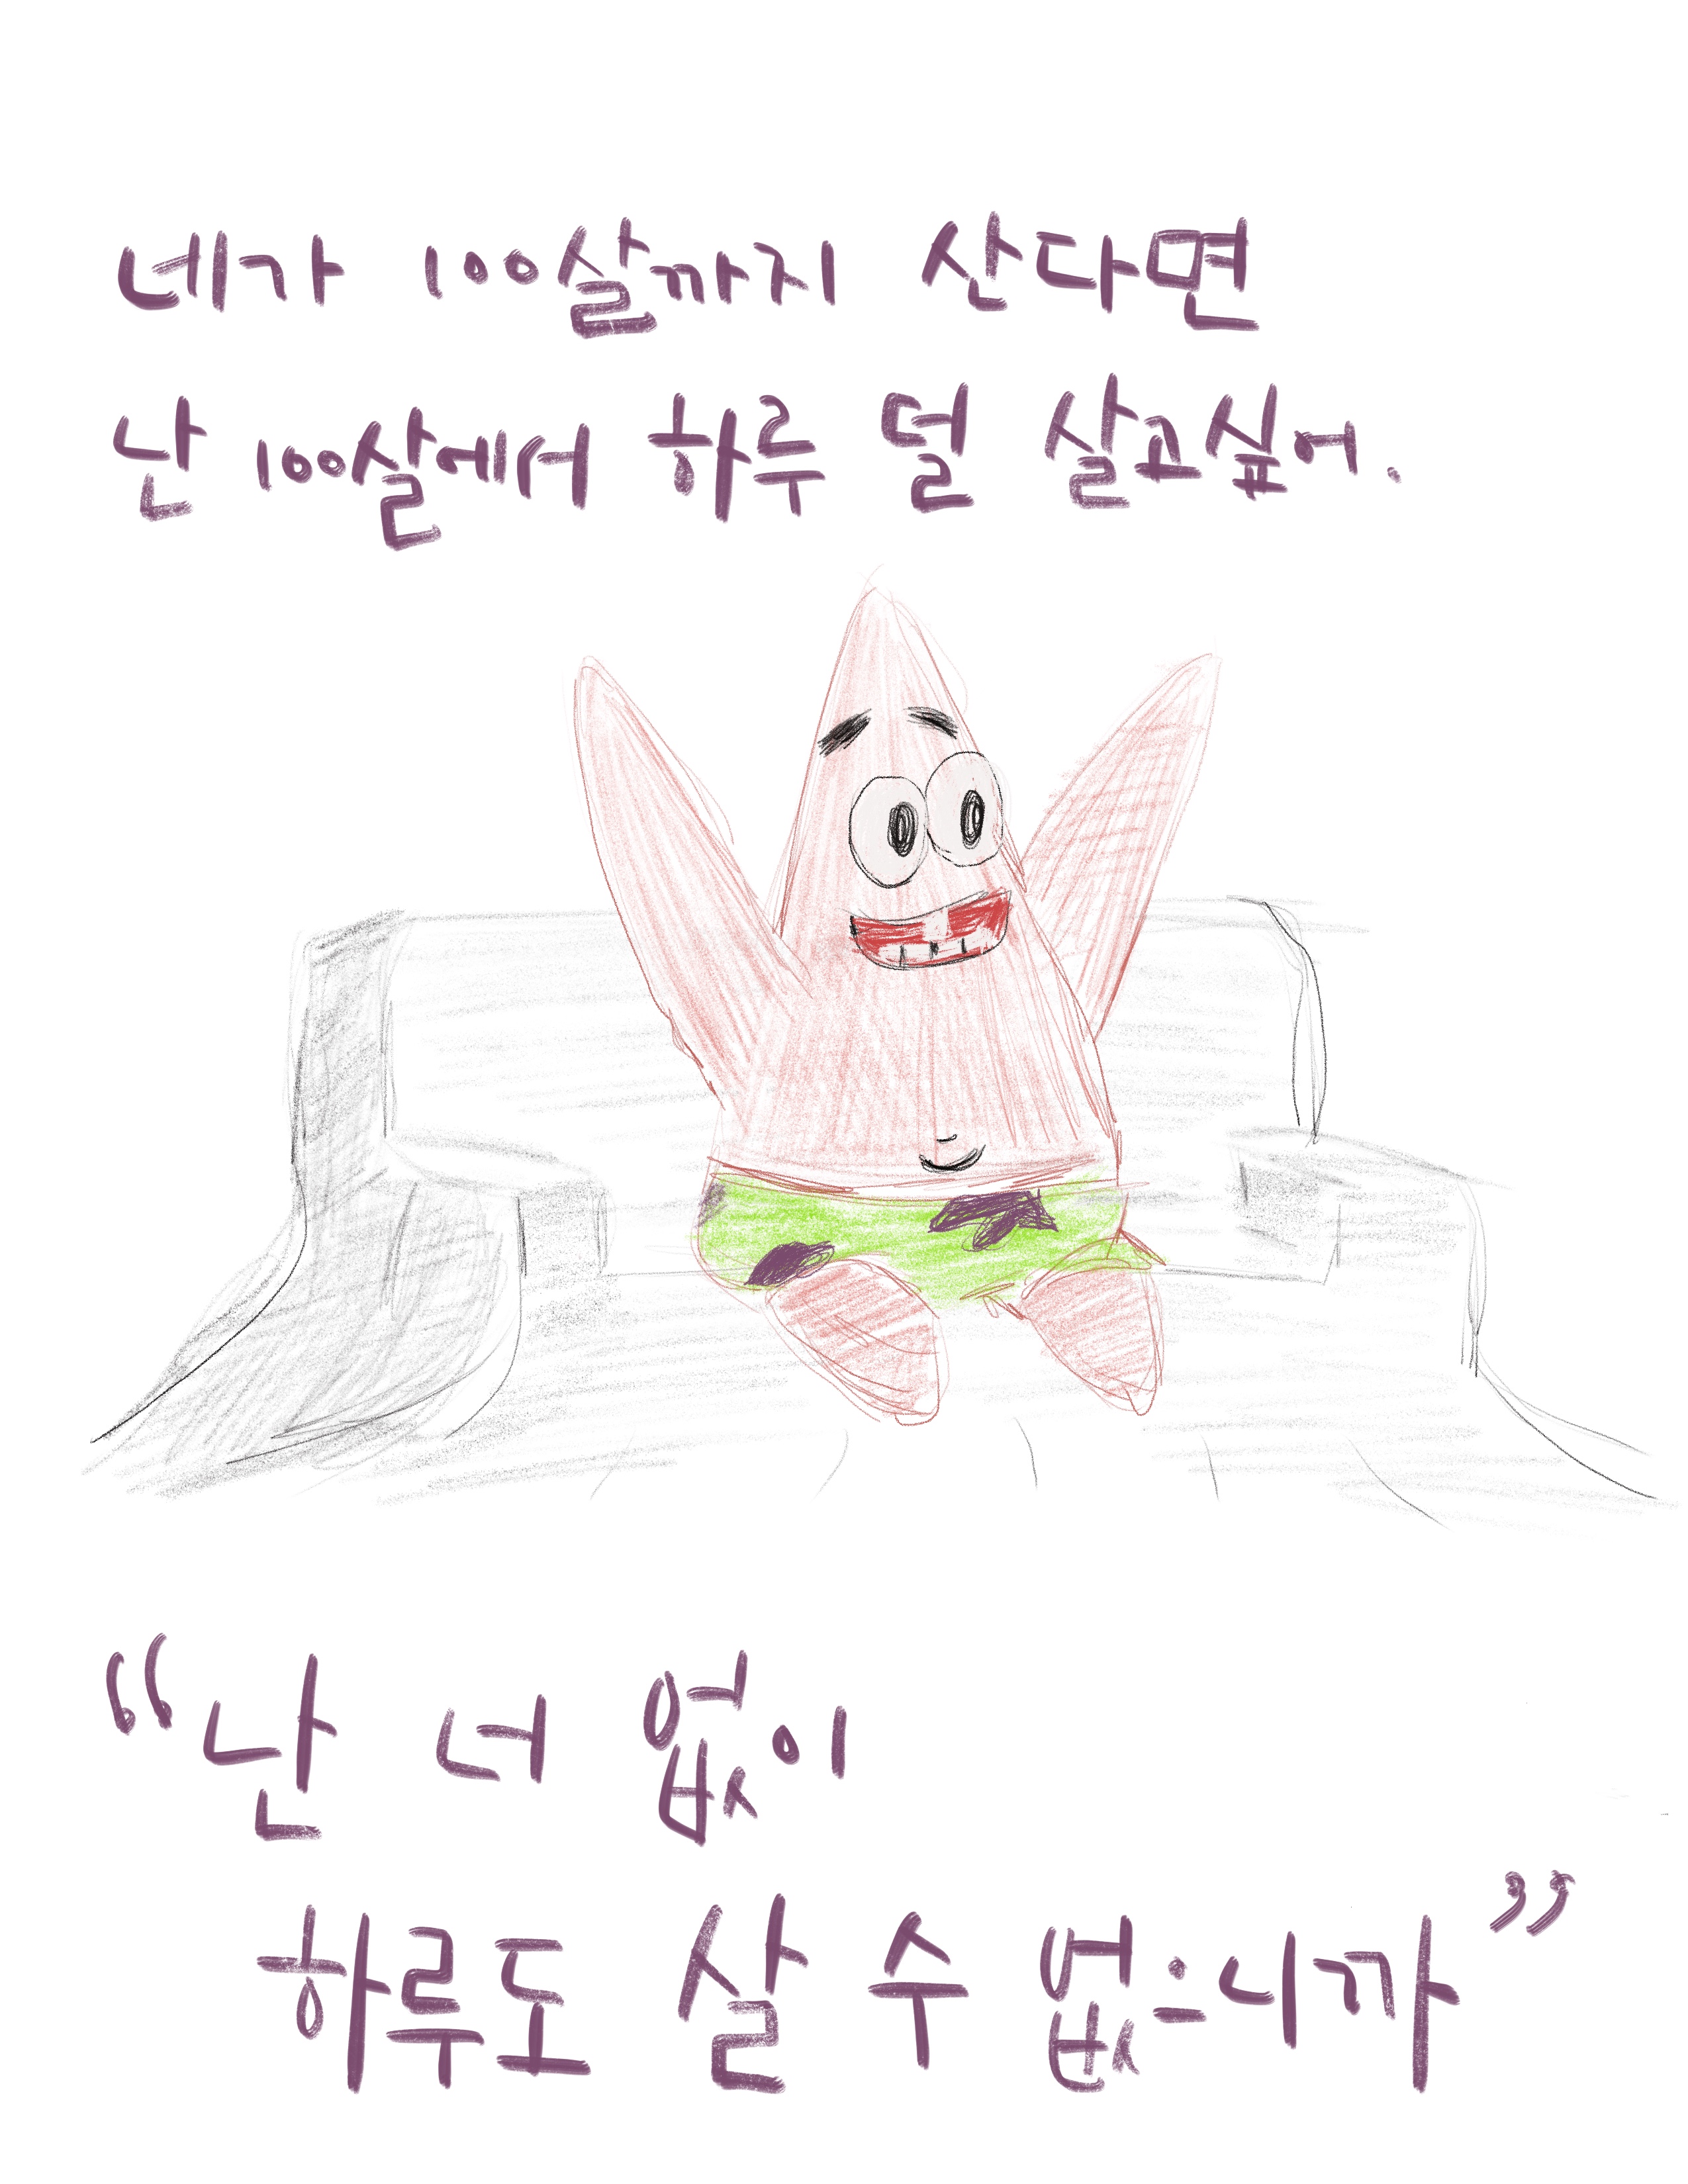 네가 100살까지 산다면
난 100살에서 하루 덜 살고싶어.
“난 너 없이
하루도 살 수 없으니까”